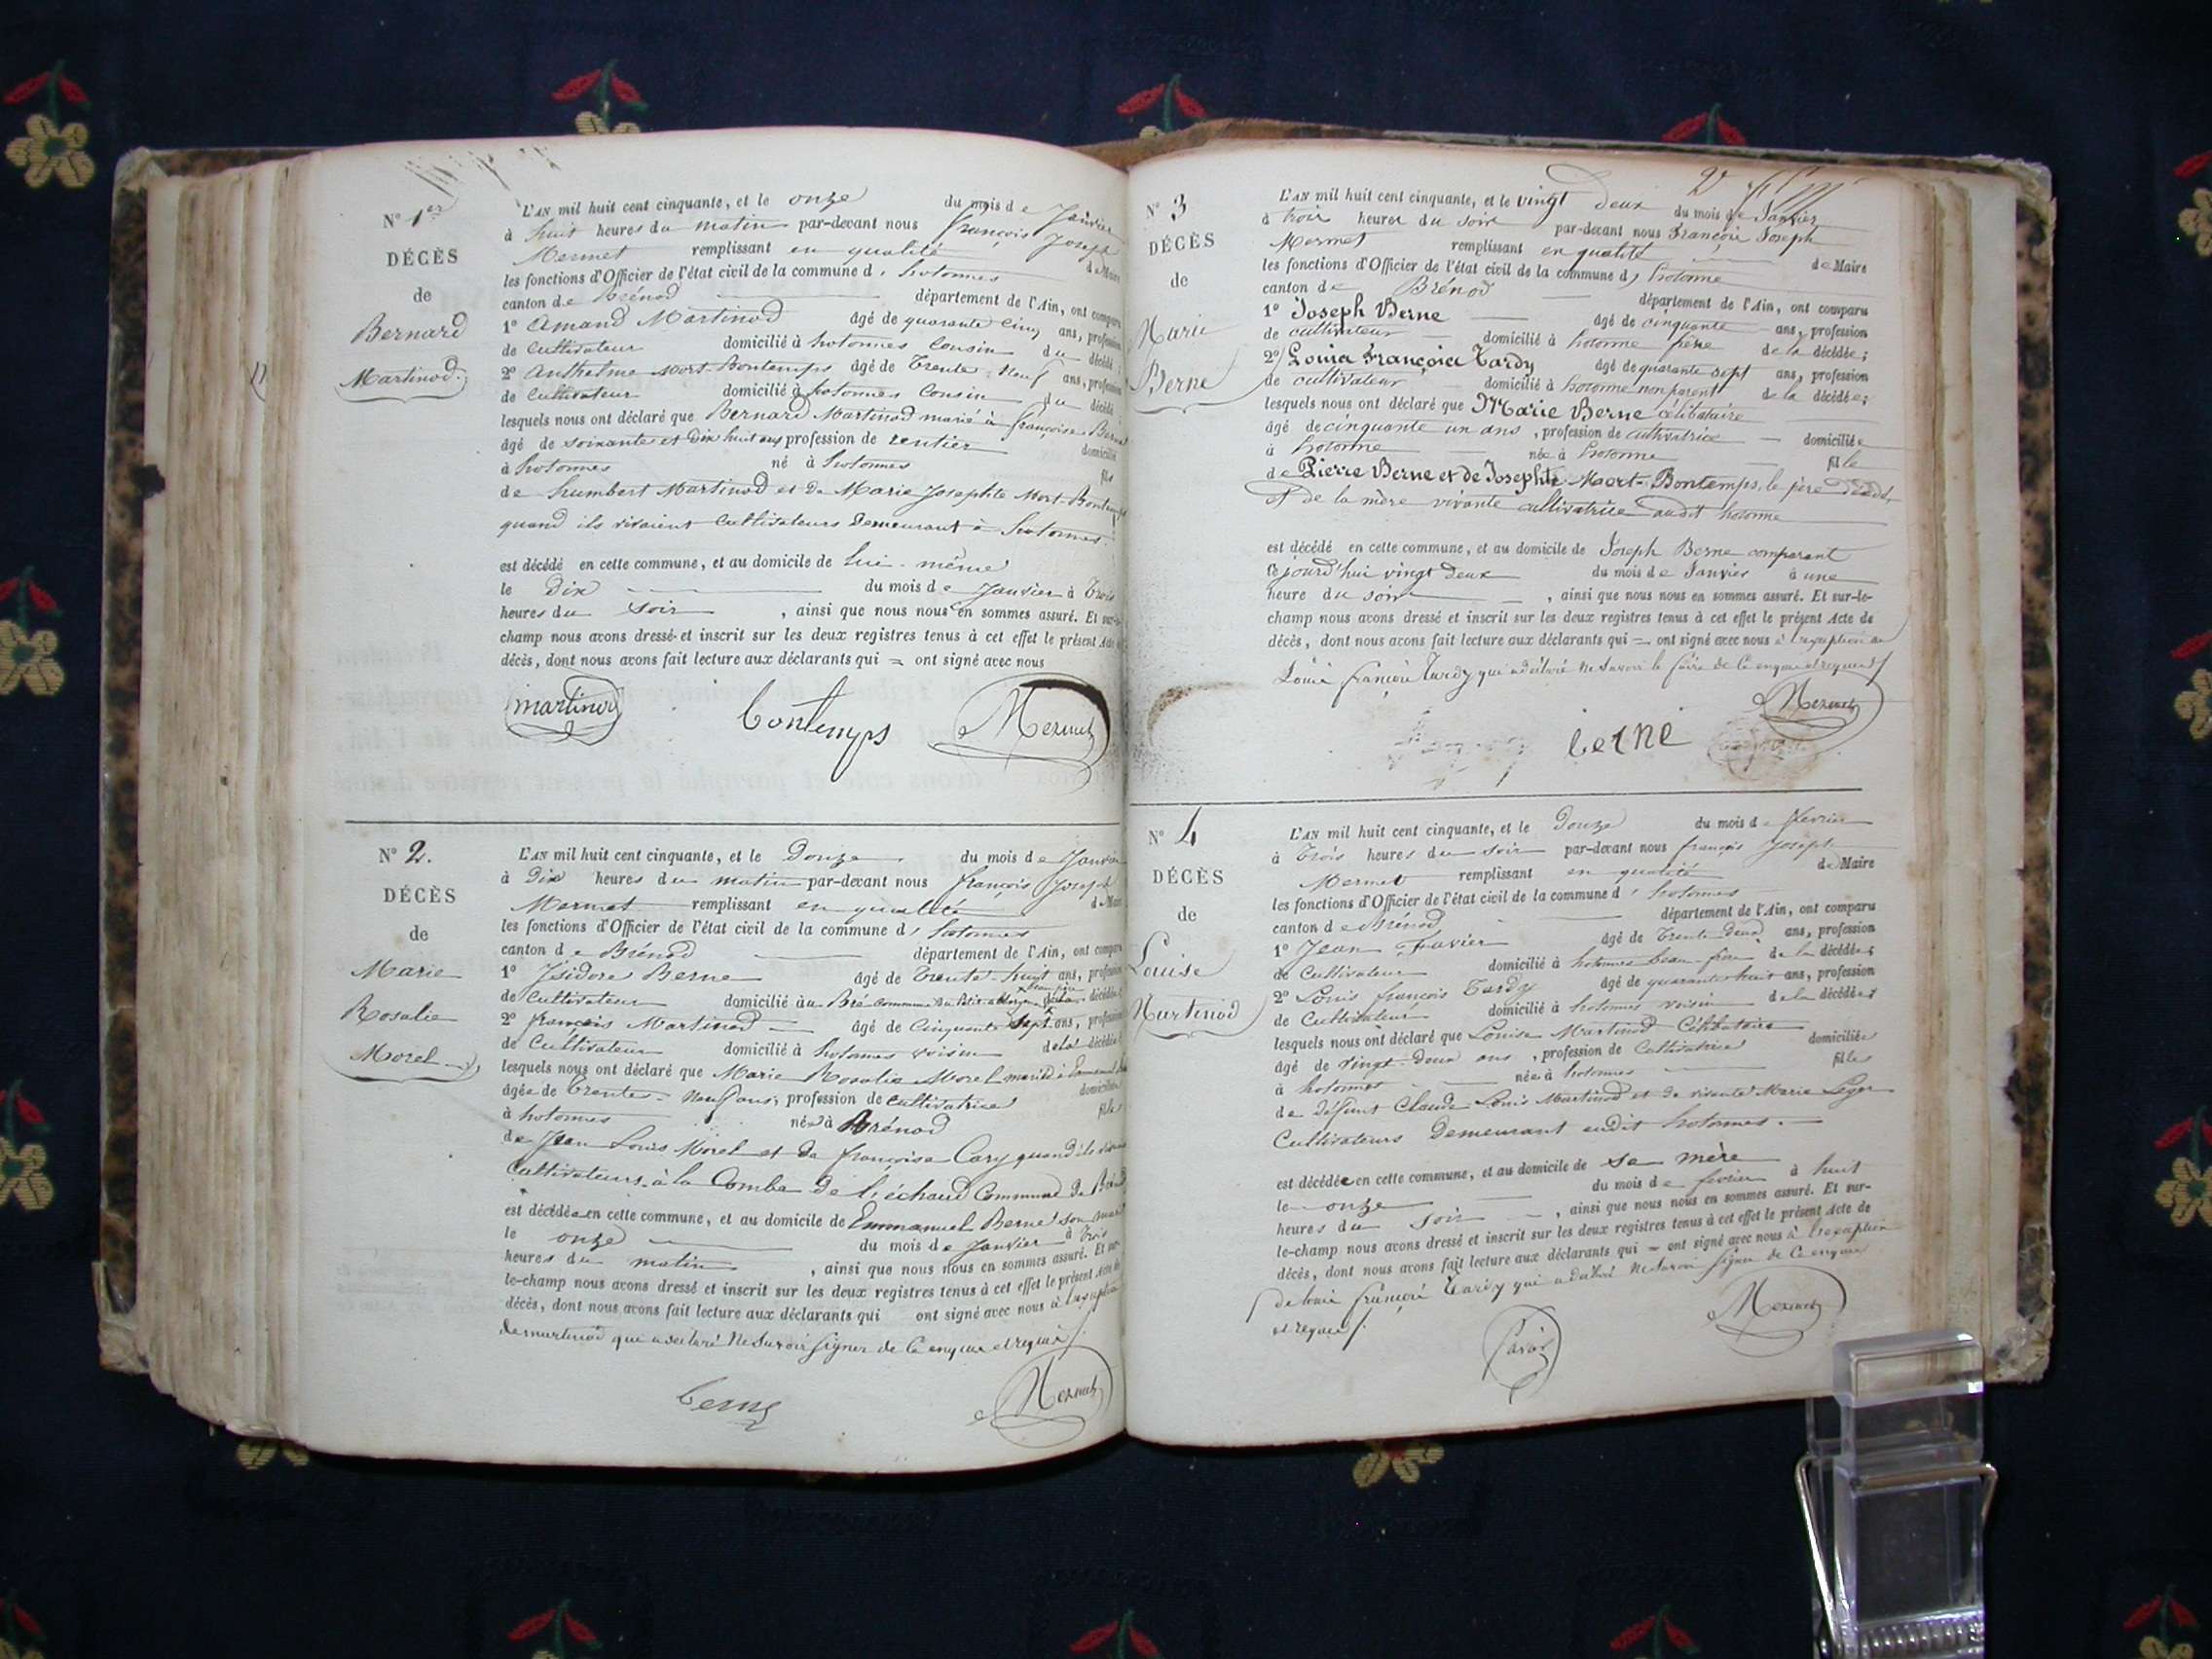 N° 1er
DÉCÈS
de
Bernard
Martinod.
L'AN mil huit cent cinquante, et le onze du mois de Janvier
à huit heures du matin par-devant nous françois Joseph
Mermet remplissant en qualité de Maire
les fonctions d'Officier de l'état civil de la commune d' hotonnes
canton de Brénod département de l'Ain, ont comparu
1° Amand Martinod âgé de quarante cinq ans, profession
de Cultivateur domicilié à hotonnes Cousin du décédé
2° Anthelme Mort-Bontemps âgé de Trente-neuf ans, profession
de Cultivateur domicilié à hotonnes Cousin du décédé
lesquels nous ont déclaré que Bernard Martinod marié à françoise Berne
âgé de soixante et Dix huit ans profession de rentier domicilié
à hotonnes né à hotonnes fils
de humbert Martinod et de Marie Josephte Mort-Bontemps
quand ils vivaient Cultivateurs Demeurant à hotonnes.
est décédé en cette commune, et au domicile de lui-même
le Dix du mois de Janvier à Trois
heures du soir , ainsi que nous nous en sommes assuré. Et sur-le-
champ nous avons dressé et inscrit sur les deux registres tenus à cet effet le présent Acte de
décès, dont nous avons fait lecture aux déclarants qui = ont signé avec nous
martinod Bontemps Mermet
N° 2.
DÉCÈS
de
Marie
Rosalie
Morel
L'AN mil huit cent cinquante, et le Douze du mois de Janvier
à Dix heures du matin par-devant nous françois Joseph
Mermet remplissant en qualité de Maire
les fonctions d'Officier de l'état civil de la commune d' hotonnes
canton de Brénod département de l'Ain, ont comparu
1° Isidore Berne âgé de Trente-huit ans, profession
de Cultivateur domicilié au Pré commune du Petit-Abergement beau frère décédée
2° françois Martinod âgé de Cinquante Sept ans, profession
de Cultivateur domicilié à hotonnes voisin de la décédée
lesquels nous ont déclaré que Marie Rosalie Morel mariée à Emmanuel Berne
âgée de Trente-Neuf ans, profession de cultivatrice domiciliée
à hotonnes née à Brénod fille
de Jean Louis Morel et de françoise Cary quand ils vivaient
Cultivateurs à la Combe de Léchaud Commune de Brénod
est décédée en cette commune, et au domicile de Emmanuel Berne son mari
le onze du mois de Janvier à Trois
heures du matin , ainsi que nous nous en sommes assuré. Et sur-
le-champ nous avons dressé et inscrit sur les deux registres tenus à cet effet le présent Acte de
décès, dont nous avons fait lecture aux déclarants qui ont signé avec nous à l'exception
de martinod qui a declaré Ne Savoir signer de Ce enquis et requis
Berne Mermet
2
N° 3
DÉCÈS
de
Marie
Berne
L'AN mil huit cent cinquante, et le vingt deux du mois de Janvier
à trois heures du soir par-devant nous François Joseph
Mermet remplissant en qualité de Maire
les fonctions d'Officier de l'état civil de la commune d' hotonne
canton de Brénod département de l'Ain, ont comparu
1° Joseph Berne âgé de cinquante ans, profession
de cultivateur domicilié à hotonne frère de la décédée;
2° Louis François Tardy âgé de quarante sept ans, profession
de cultivateur domicilié à hotonne non parent de la décédée;
lesquels nous ont déclaré que Marie Berne célibataire
âgé de cinquante un ans , profession de cultivatrice domiciliée
à hotonne née à hotonne fille
de Pierre Berne et de Josephte Mort-Bontemps, le père décédé,
et de la mère vivante cultivatrice audit hotonne
est décédé en cette commune, et au domicile de Joseph Berne comparant
ce jourd'hui vingt deux du mois de Janvier à une
heure du soir , ainsi que nous nous en sommes assuré. Et sur-le-
champ nous avons dressé et inscrit sur les deux registres tenus à cet effet le présent Acte de
décès, dont nous avons fait lecture aux déclarants qui = ont signé avec nous à l'exception de
Louis françois Tardy qui a déclaré Ne Savoir le faire de Ce enquis et requis
Berne Mermet
N° 4
DÉCÈS
de
Louise
Martinod
L'AN mil huit cent cinquante, et le Douze du mois de février
à Trois heures du soir par-devant nous françois Joseph
Mermet remplissant en qualité de Maire
les fonctions d'Officier de l'état civil de la commune d' hotonnes
canton de Brénod département de l'Ain, ont comparu
1° Jean Favier âgé de Trente Deux ans, profession
de Cultivateur domicilié à hotonnes beau-frère de la décédée;
2° Louis françois Tardy âgé de quarante huit ans, profession
de Cultivateur domicilié à hotonnes voisin de la décédée;
lesquels nous ont déclaré que Louise Martinod Célibataire
âgé de vingt-deux ans , profession de Cultivatrice domiciliée
à hotonnes née à hotonnes fille
de défunt Claude Louis Martinod et de vivante Marie Leger
Cultivateurs Demeurant audit hotonnes.
est décédée en cette commune, et au domicile de sa mère
le onze du mois de février à huit
heures du soir , ainsi que nous nous en sommes assuré. Et sur-
le-champ nous avons dressé et inscrit sur les deux registres tenus à cet effet le présent Acte de
décès, dont nous avons fait lecture aux déclarants qui = ont signé avec nous à l'exception
de Louis françois Tardy qui a déclaré Ne Savoir signer de Ce enquis
et requis.
Favier Mermet